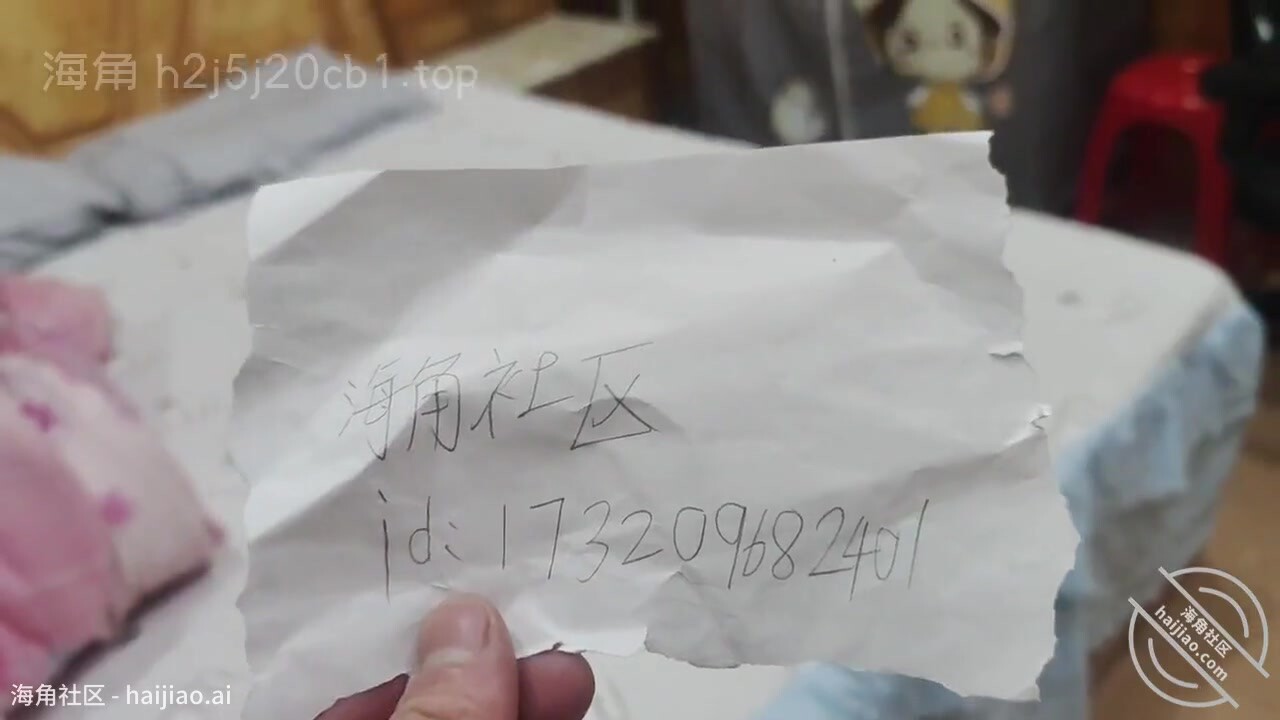 海角 h2j5j20cb1.top
海角社区
id: 173209682401
海角社区
haijiao.com
海角社区 - haijiao.ai